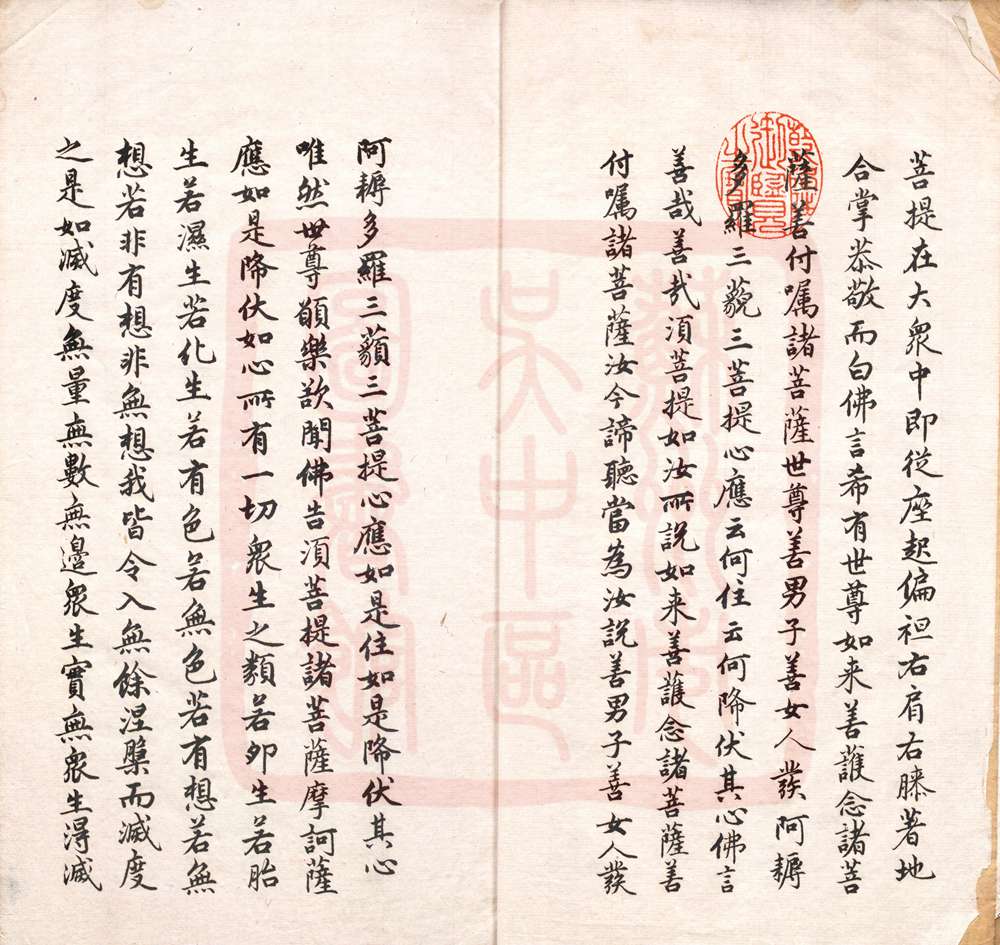 菩提在大衆中即從座起偏袒右肩右膝著地
合掌恭敬而白佛言希有世尊如来善護念諸菩
薩善付嘱諸菩薩世尊善男子善女人發阿耨
多羅三藐三菩提心應云何住云何降伏其心佛言
善哉善哉須菩提如汝所説如来善護念諸菩薩善
付嘱諸菩薩汝今諦聽當為汝説善男子善女人發
阿耨多羅三藐三菩提心應如是住如是降伏其心
唯然世尊願樂欲聞佛告須菩提諸菩薩摩訶薩
應如是降伏如心所有一切衆生之類若卵生若胎
生若濕生若化生若有色若無色若有想若無
想若非有想非無想我皆令入無餘涅槃而滅度
之是如滅度無量無數無邊衆生實無衆生得滅
乾隆御覽之寶
蘇州市
吴中區
圖書館